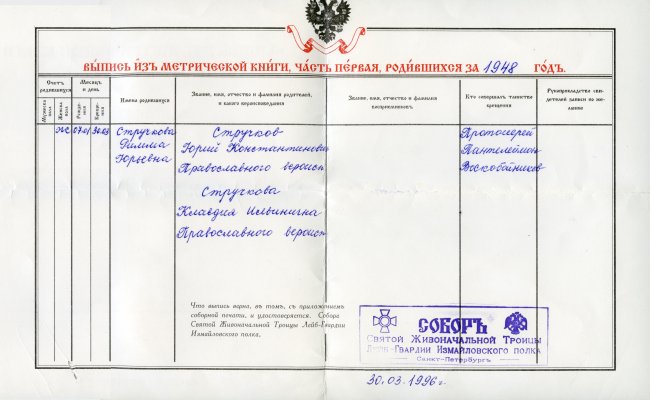 ВЫПИСЬ ИЗЪ МЕТРИЧЕСКОЙ КНИГИ, ЧАСТЬ ПЕРВАЯ, РОДИВШИХСЯ ЗА 1948 ГОДЪ.
Счетъ родившихся
Мѣсяцъ и день
Имена родившихся
Званiе, имя, отчество и фамилiя родителей,
и какого вѣроисповѣданiя
Званiе, имя, отчество и фамилiя
воспрiемниковъ.
Кто совершалъ таинство
крещенiя
Рукоприкладство сви-
дѣтелей записи по же-
ланiю
Мужеска пола
Женска пола
Рожденiя
Крещенiя
жс
07.01
30.03
Стручкова
Римма
Юрьевна
Стручков
Юрий Константинович
Православного вероисп
Стручкова
Клавдия Ильинична
Православного вероисп
Протоиерей
Пантелеймон
Воскобойников
Что выпись вѣрна, въ томъ, съ приложенiем
соборной печати, и удостовѣряется. Собора
Святой Живоначальной Троицы Лейб-Гвардии
Измайловского полка.
СОБОРЪ
Святой Живоначальной Троицы
Лейб-Гвардии Измайловского полка
Санкт-Петербургъ
30.03.1996 г.